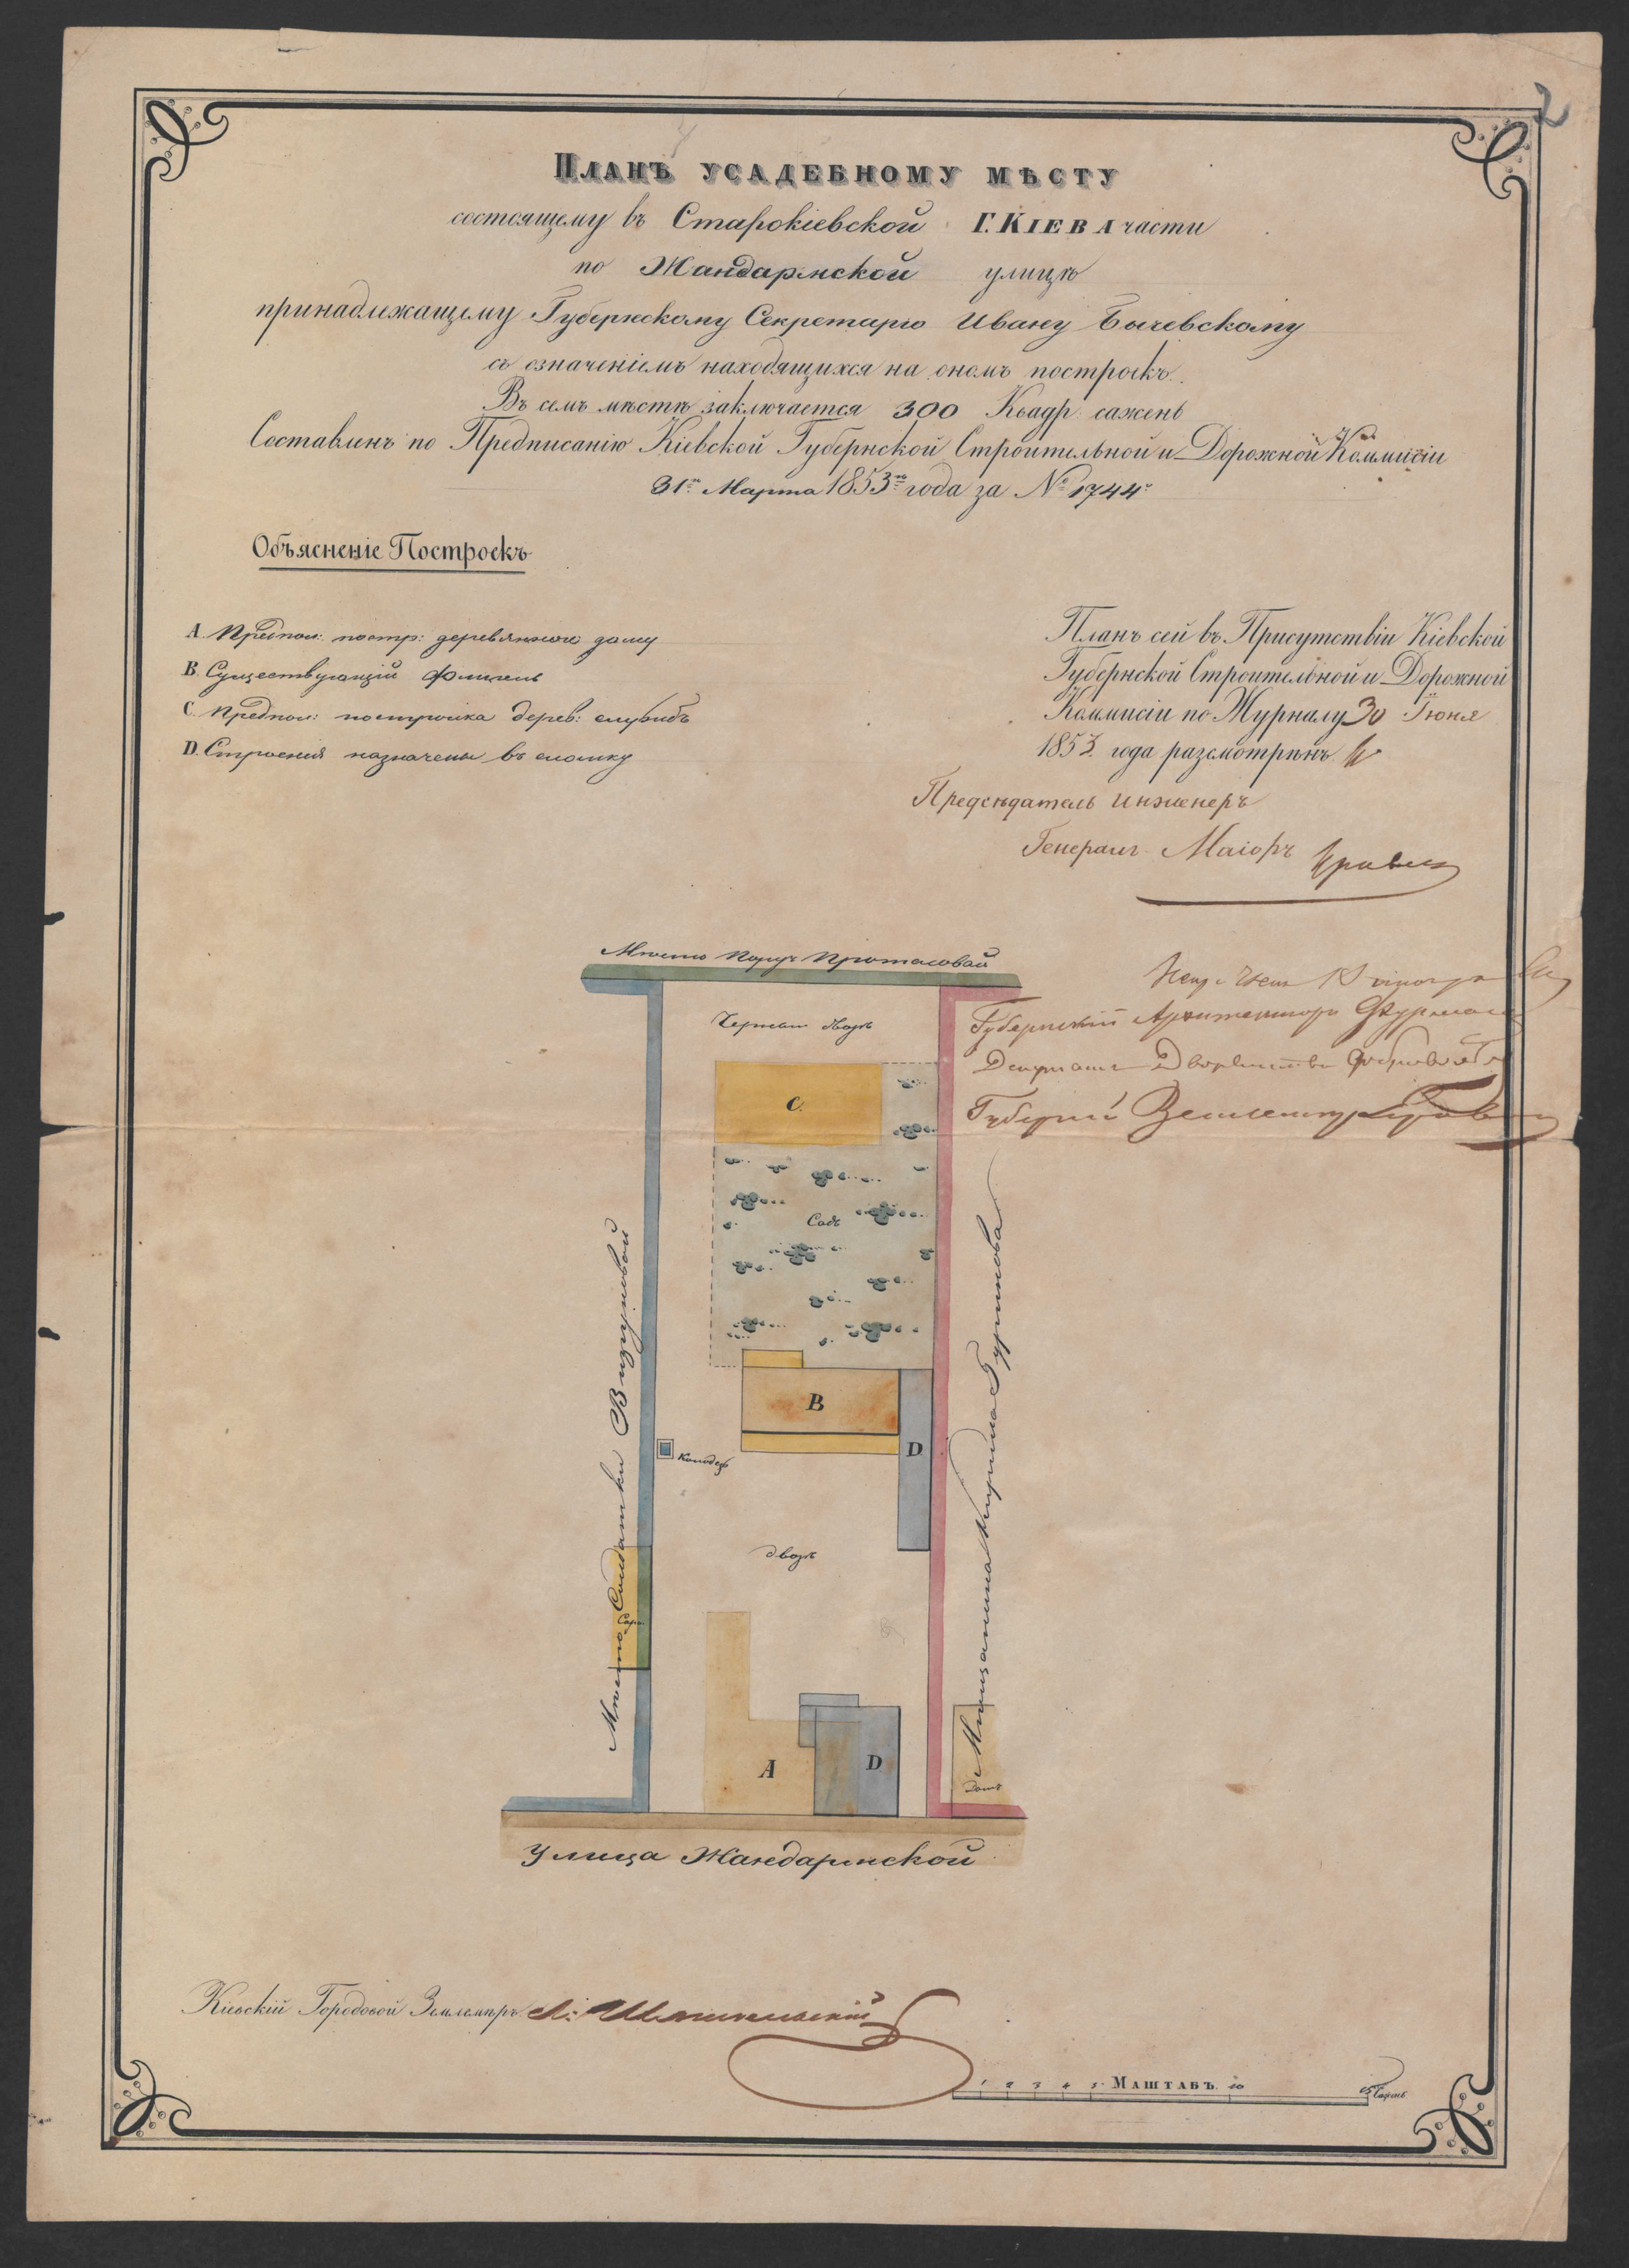 2
Планъ усадебному мѣсту
состоящему въ Старокіевской Г. Кіева части
по Жандармской улицѣ
принадлежащему Губернскому Секретарю Ивану Бычевскому
съ означеніемъ находящихся на ономъ построекъ.
Въ семъ мѣстѣ заключается 300 Квадр: сажень
Составленъ по Предписанію Кіевской Губернской Строительной и Дорожной Коммисіи
31го Марта 1853го года за № 1744м
Объясненіе Построекъ
А. Предпол: постр: деревяннаго дому
В. Существующій флигель
С. Предпол: постройка дерев: службъ
D. Строенія назначены въ сломку
Планъ сей въ Присутствіи Кіевской
Губернской Строительной и Дорожной
Коммисіи по Журналу 30 Іюня
1853 года разсмотрѣнъ
Предсѣдатель Инженеръ
Генералъ Маіоръ
Губернскій Архитекторъ
Депутатъ Дворянства
Губерн: Землемѣръ
Мѣсто Поруч: Протасовой
Черный дворъ
С.
Садъ
В
D
Колодезь
дворъ
Сарай
А
D
Домъ
Мѣсто Солдатки
Мѣщанина
Улица Жандармской
Кіевскій Городовой Землемѣръ
1 2 3 4 5 Маштабъ. 10 15 Сажень